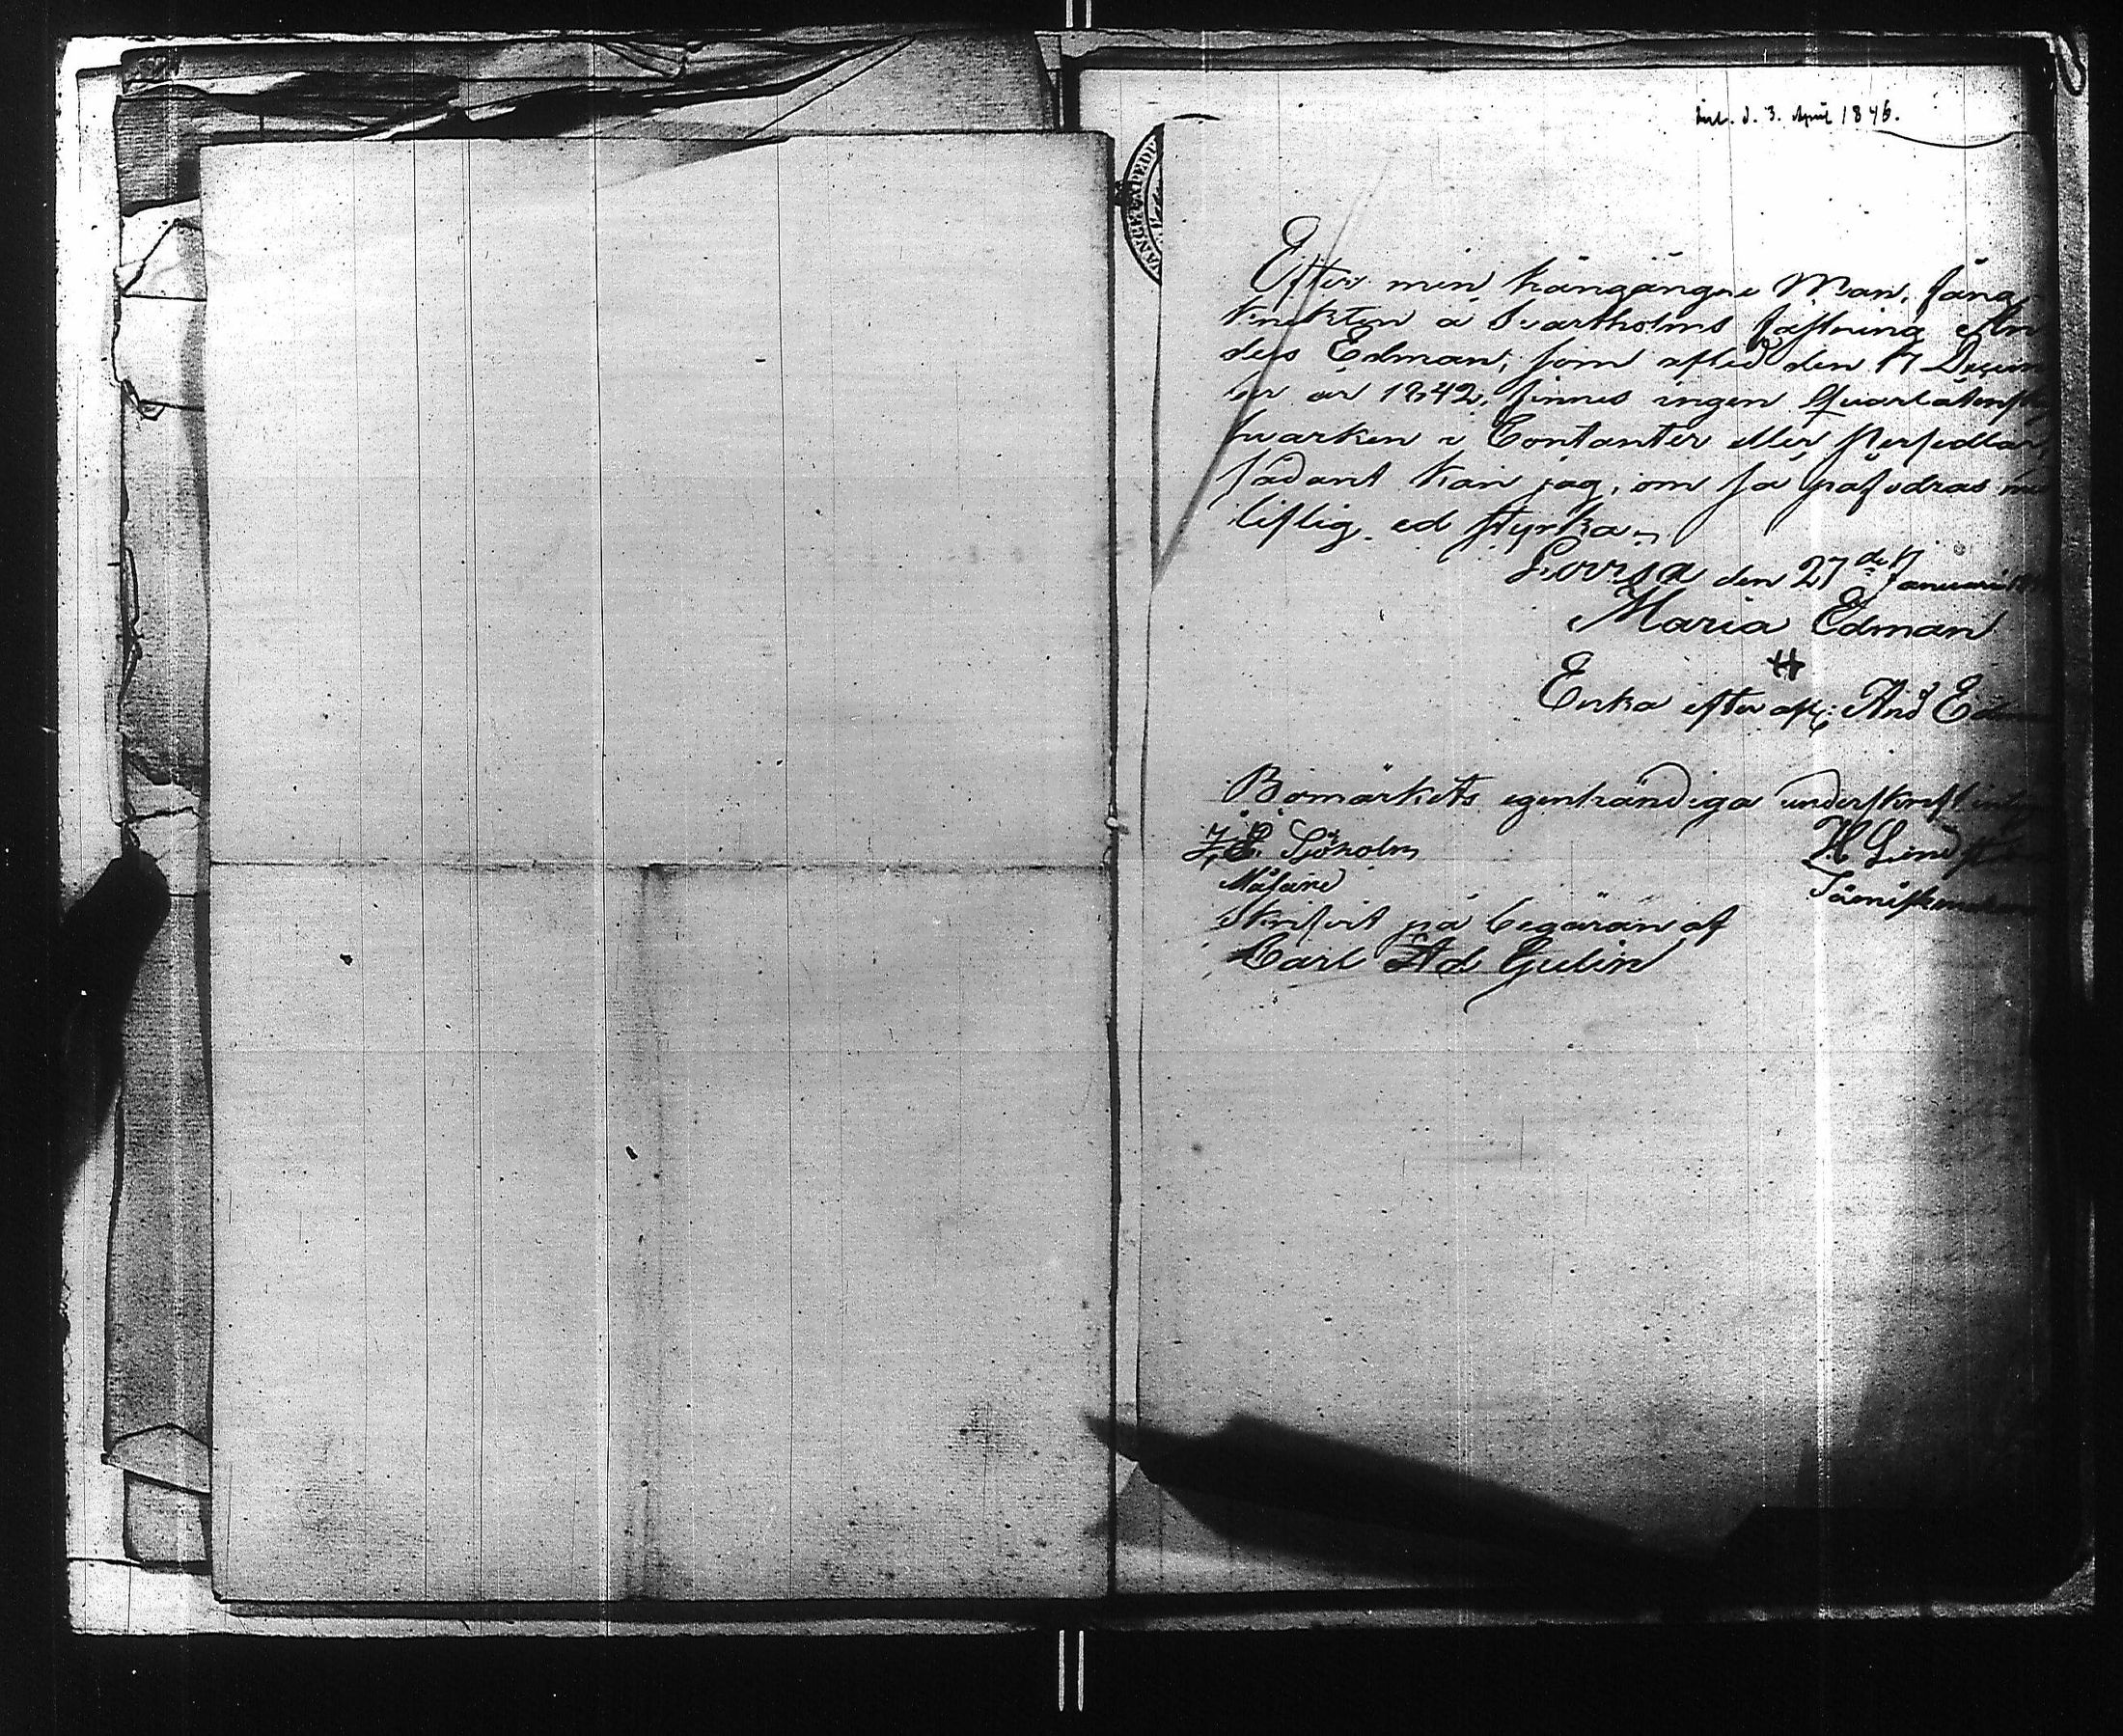 Inl. d. 3. April 1846.
Efter min hängångne Man, fång-
knekten å Svartholms fästning An
ders Edman, som afled den 17 Decem
ber år 1842, finnes ingen Qvarlåtenskap
hvarken i Contanter eller Persedlar,
sådant kan jag, om så påfodras me
liflig ed styrka.
Lovisa den 27de Januari
Maria Edman
Enka efter afl: And Edman
Bomärkets egenhändiga underskrift intyga
J. E. Sjöholm H Lindst
Skrifvit på begäran af
Carl Ad Gulin